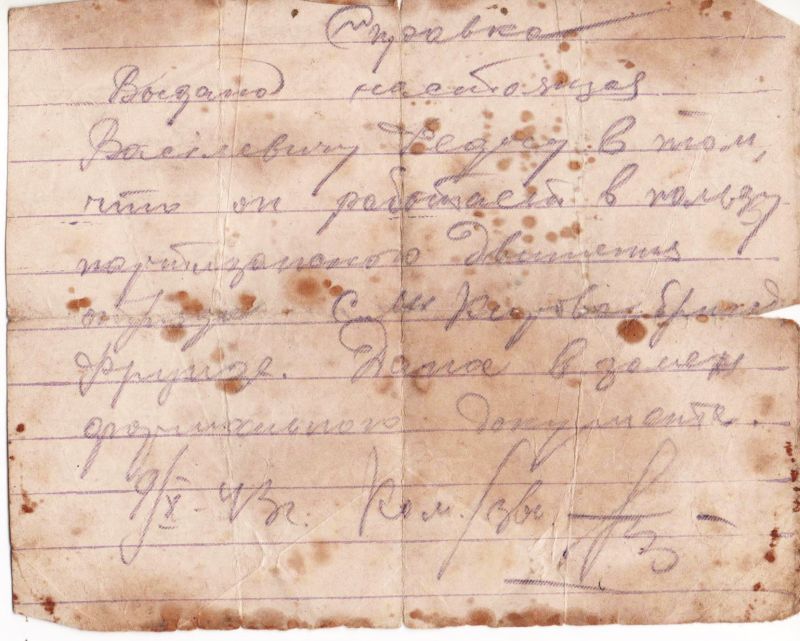 Справка
Выдано настоящая
Василевичу Федору в том,
что он работает в пользу
партизанского движения
отряда С. М. Кирова бригад
Фрунзе. Дана в замен
формального документа.
9/X-43г. Ком. /зв.